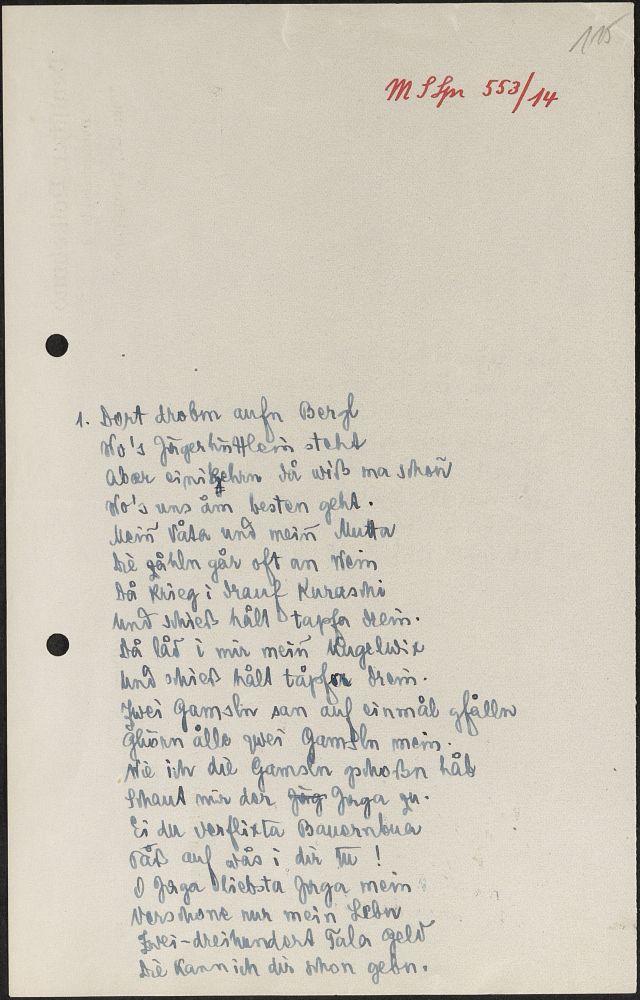 115
M S Spr 553/14
1. Dort drobm aufn Bergl
Wo's Jågerhüttlein steht
Aber einikehrn då wiß ma schoñ
Wo's uns åm besten geht.
Meiñ Våta und meiñ Mutta
Die zåhln går oft an Wein
Då krieg i drauf Kuraschi
Und schieß hålt tapfa drein.
Då låd i mir meiñ Kugelbix
Und schieß hålt tåpfer drein.
Zwei Gamsln san auf einmål gfålln
Ghörn ålle zwei Gamsln mein.
Wie ich die Gamsln gschoßn håb
Schaut mir der Jåg Jaga zu.
Ei du verflixta Bauernbua
Påß auf wås i dir Tu !
O Jaga liebsta Jaga mein
Verschone nur mein Lebn
Zwei-dreihundert Tala Geld
Die kann ich dir schon gebn.